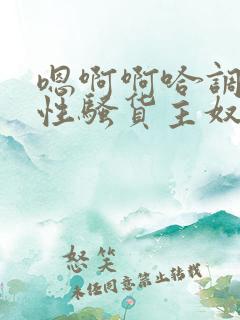 嗯啊啊哈调
性骚货主奴
怒笑
未经同意禁止转载